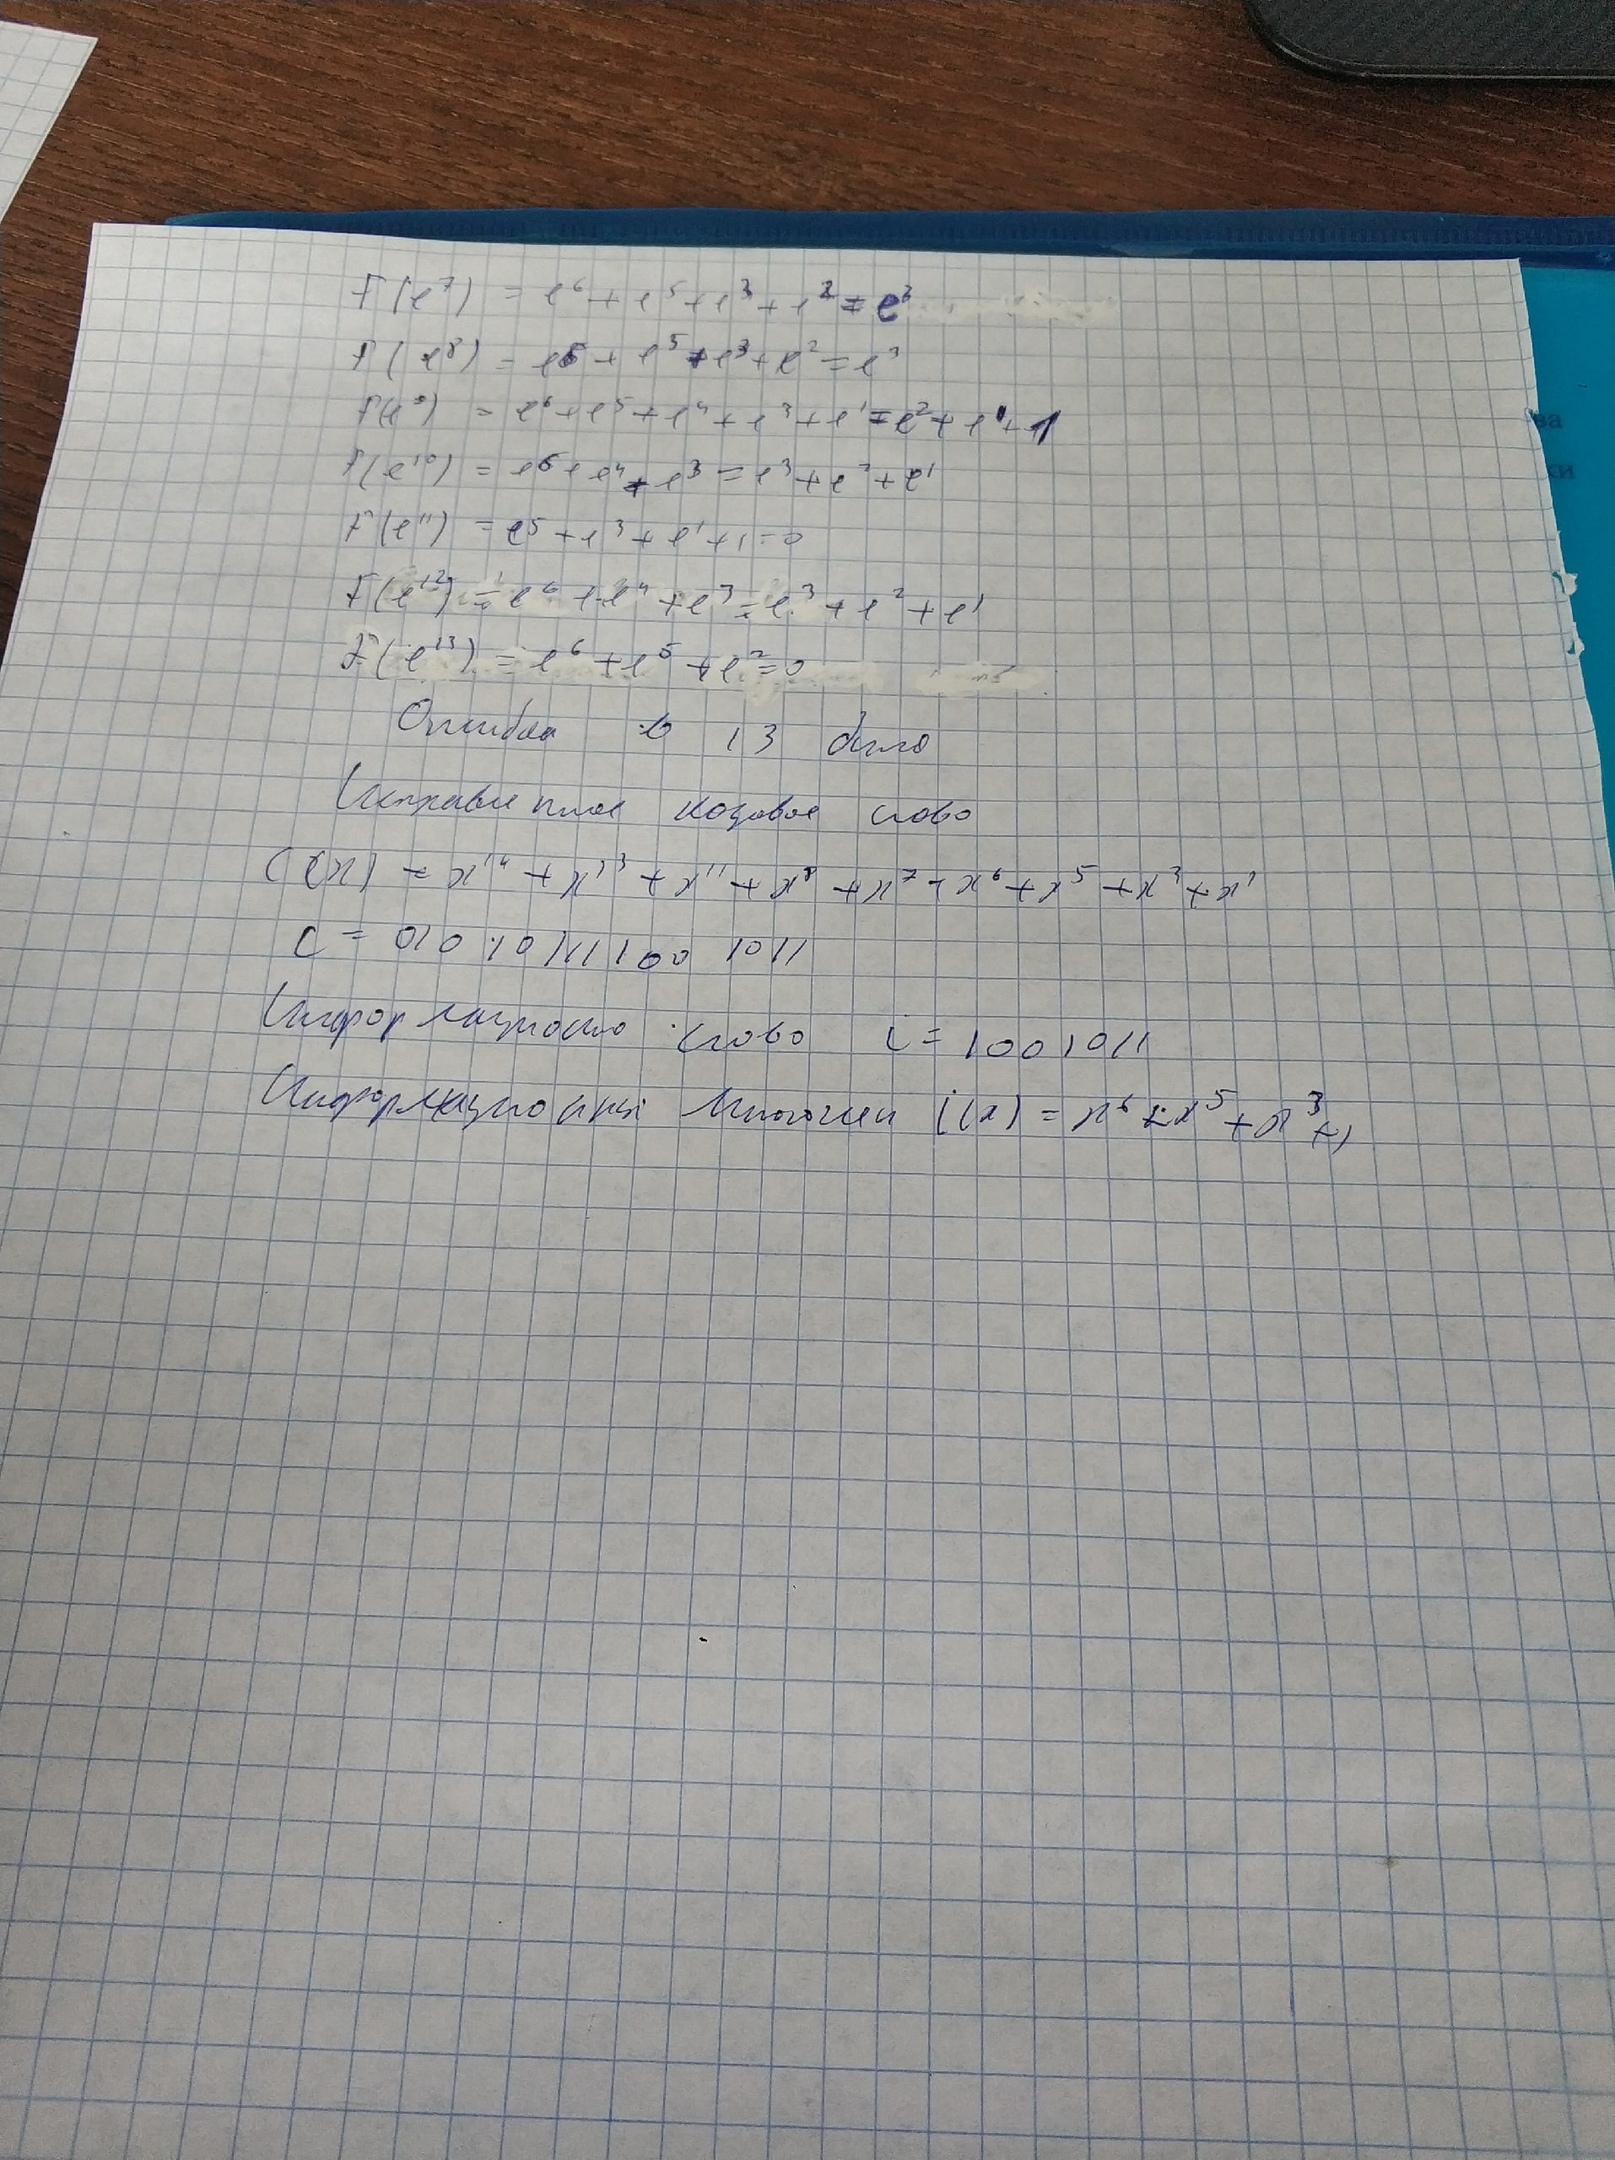 F(e⁷) = e⁶ + e⁵ + e³ + e² = e³
F(e⁸) = e⁵ + e⁵ + e³ + e² = e³
F(e⁹) = e⁶ + e⁵ + e⁴ + e³ + e¹ = e² + e¹ + 1
F(e¹⁰) = e⁶ + e⁴ + e³ = e³ + e² + e¹
F(e¹¹) = e⁵ + e³ + e¹ + 1 = 0
F(e¹²) = e⁶ + e⁴ + e³ = e³ + e² + e¹
F(e¹³) = e⁶ + e⁵ + e² = 0
Ошибка в 13 бите
Исправленное кодовое слово
C(x) = x¹⁴ + x¹³ + x¹¹ + x⁸ + x⁷ + x⁶ + x⁵ + x³ + x¹
C = 010101111001011
Информационно слово i = 1001011
Информационный многочлен i(x) = x⁶ + x⁵ + x³ + 1
ва
ки